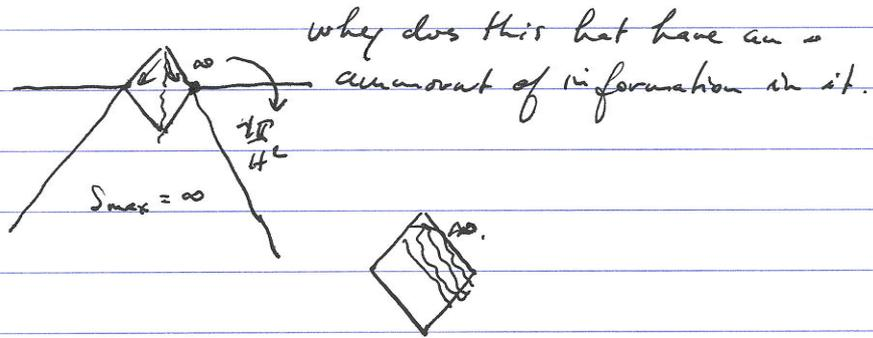 why does this hat have an ∞
ammount of information in it.
∞
π
H²
S max = ∞